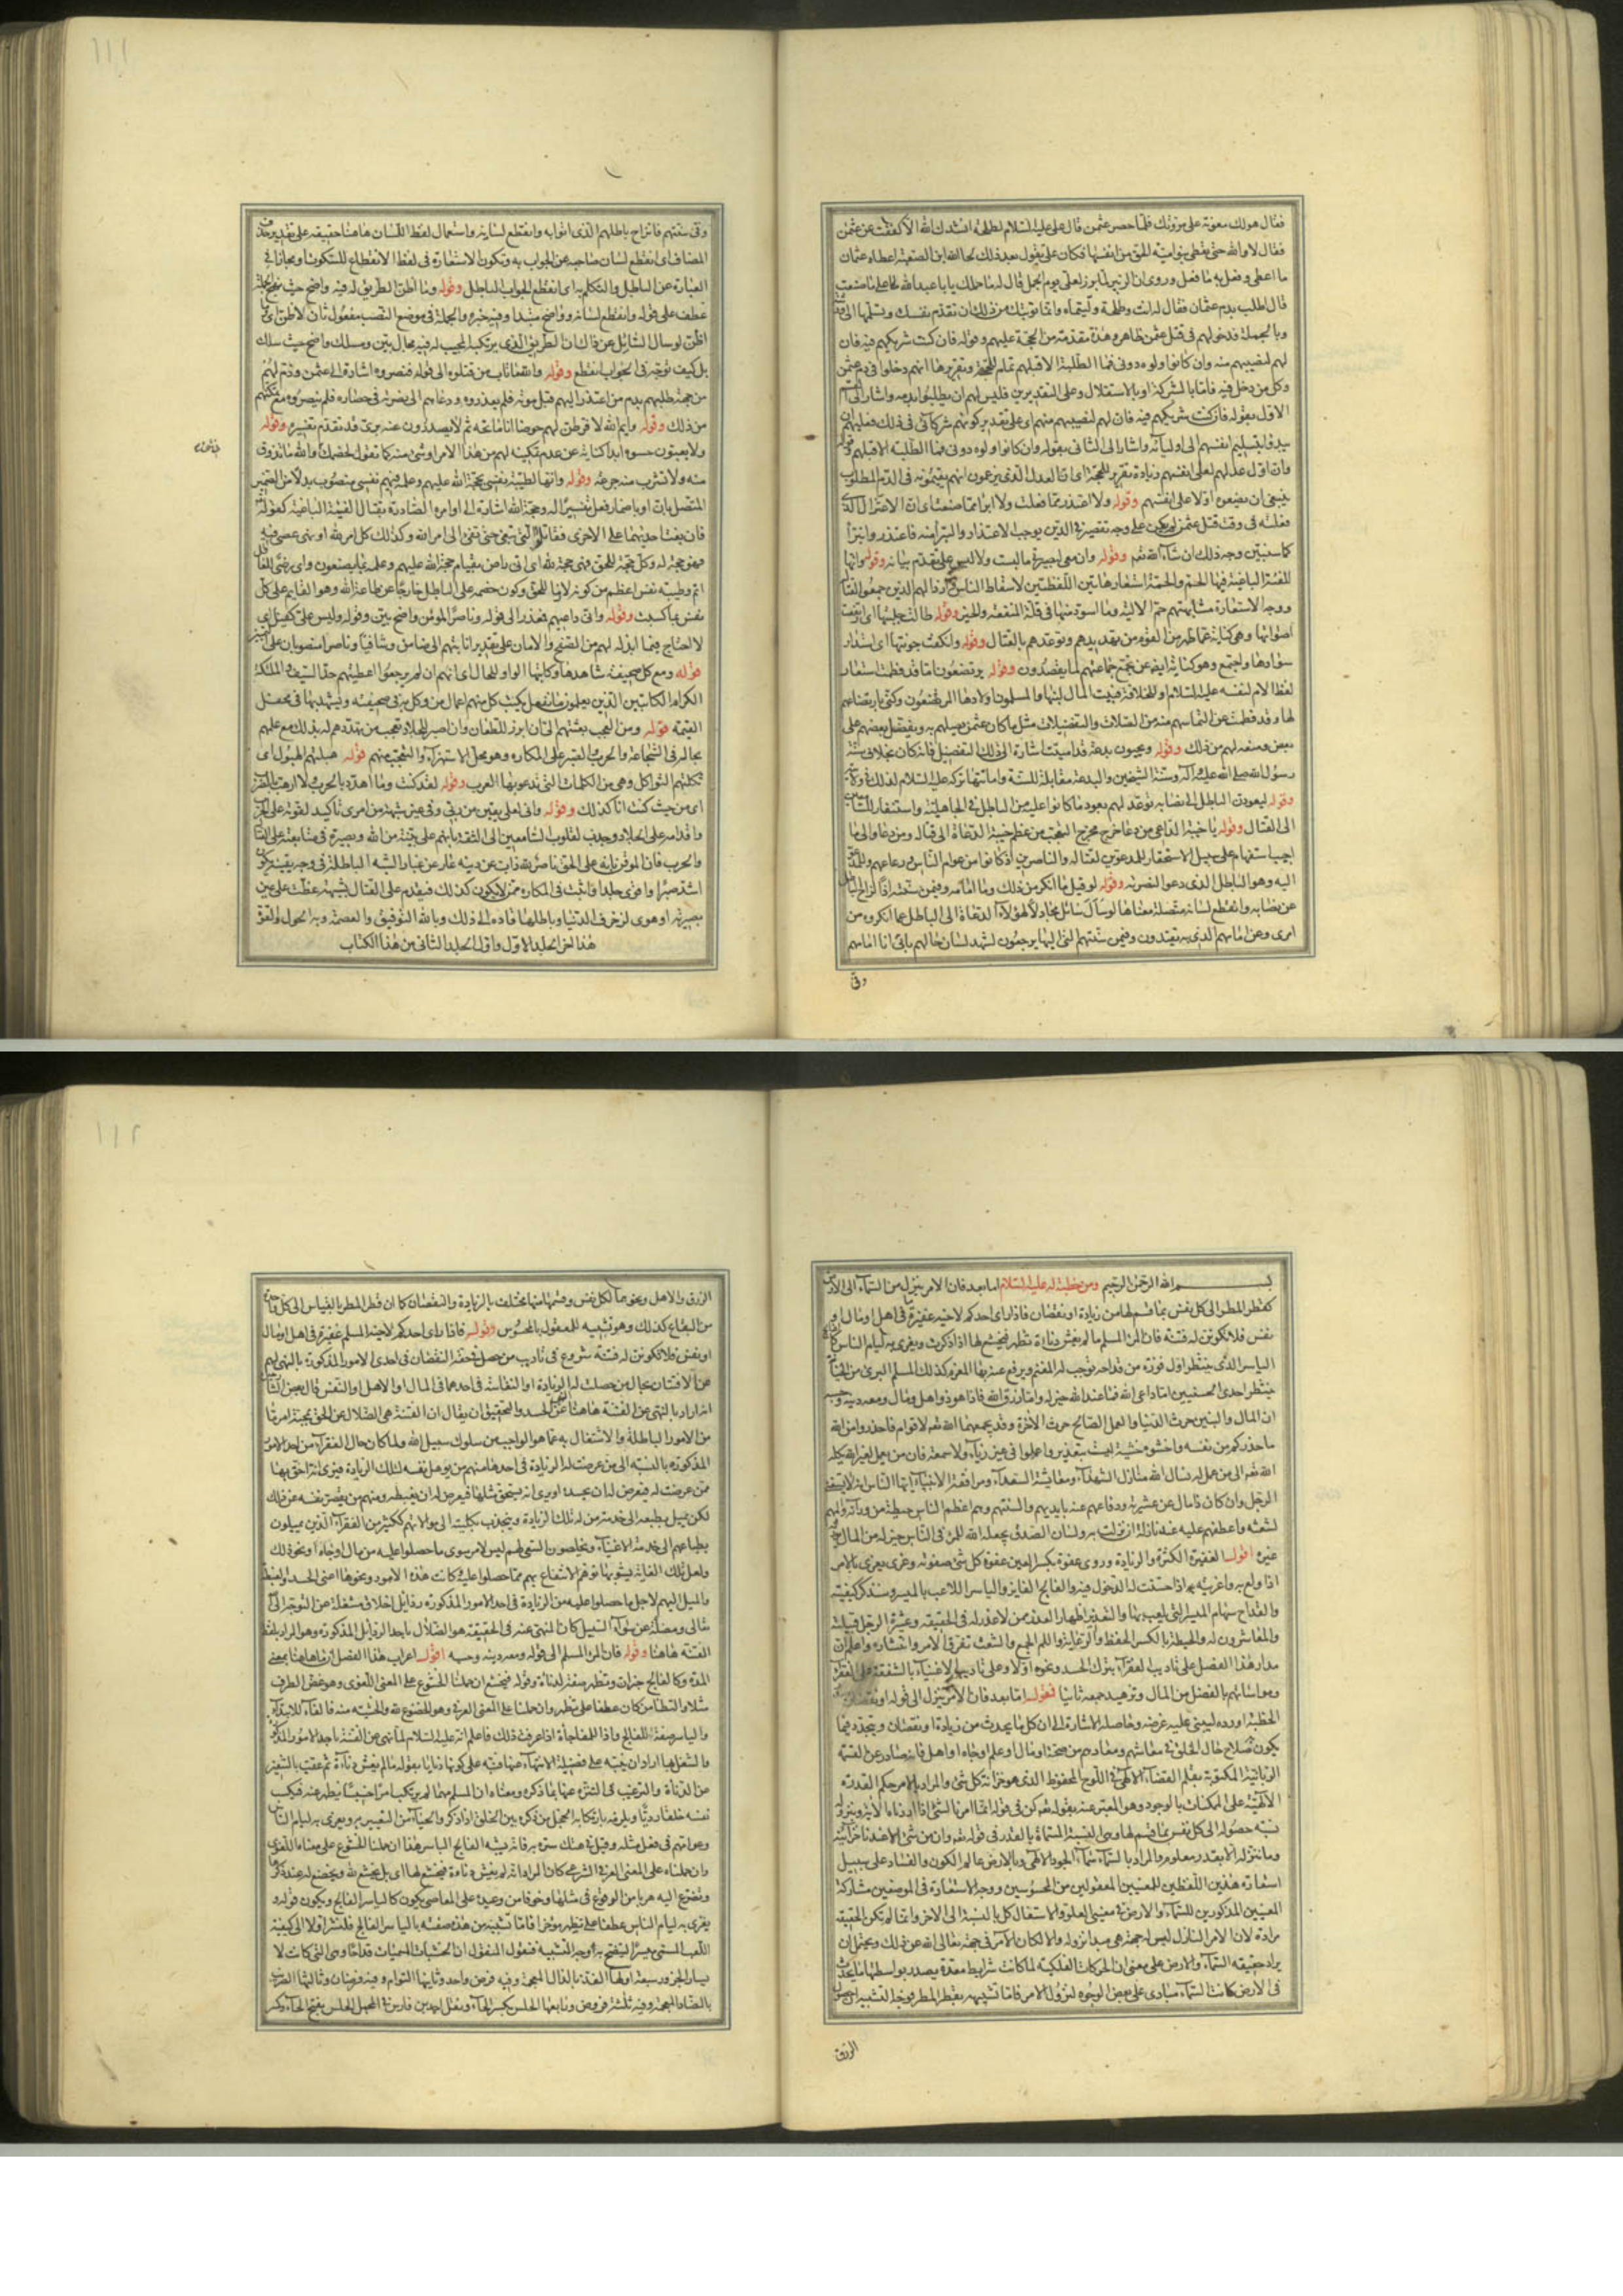 فقال هولك معونة على مؤونتك فلما حصر عثمن قال على عليه السلام لطلحة انشدك الله الا كففت عن عثمن
فقال لا والله حتى تعطى بنو امية الحق من انفسها فكان على يقول بعد ذلك لحا الله ابن الصعبة اعطاه عثمان
ما اعطى وفعل به ما فعل وروى ان الزبير لما برز لعلى يوم الجمل قال له ما حملك يا ابا عبد الله على ما صنعت
قال اطلب بدم عثمان فقال له انت وطلحة وليتماه وانما توبتك من ذلك ان تقدم نفسك وتسلمها الى
وبالجملة فدخولهم فى قتل عثمن ظاهر وهذه مقدمة من الحجة عليهم وقوله فان كنت شريكهم فيه فان
لهم لنصيبهم منه وان كانوا ولوه دونى فما الطلبة الا قبلهم تمام للحجة وتقريرها انهم دخلوا فى دم عثمن
وكل من دخل فيه فاما بالشركة او بالاستقلال وعلى التقديرين فليس لهم ان يطلبوا بدمه واشار الى القسم
الاول بقوله فان كنت شريكهم فيه فان لهم لنصيبهم منه اى على تقدير كونهم شركائى فى ذلك فعليهم ان
يبدؤا بتسليم انفسهم الى اوليائه واشار الى الثانى بقوله وان كانوا ولوه دونى فما الطلبة الا قبلهم وقوله
وان اول عدلهم لعلى انفسهم زيادة تقرير للحجة اى ان العدل الذى يزعمون انهم يقيمونه فى الدم المطلوب
ينبغى ان يضعوه اولا على انفسهم وقوله ولا اعتذر مما فعلت ولا ابرأ مما صنعت اى ان الاعتزال الذى
فعلته فى وقت قتل عثمن لم يكن على وجه تقصير فى الدين يوجب الاعتذار والتبرأ منه فاعتذر واتبرأ
كما سنبين وجه ذلك ان شاء الله تعالى وقوله وان معى لبصيرتى ما لبست ولا لبس على تقدم بيانه وقوله وانها
للفئة الباغية فيها الحم والحمة استعار هاتين اللفظتين لاسقاط الناس
ووجه الاستعارة مشابهتهم حم الالية وما اسود منها فى قلة المنفعة والخير وقوله طالت جلبتها اى ارتفعت
اصواتها وهى كناية عما ظهر من القوم من تهديدهم وتوعدهم بالقتال وقوله وانكفت جونتها اى استدار
سوادها واجتمع وهو كناية ايضا عن تجمع جماعتهم لما يقصدون وقوله يرتضعون اما قد فطمت استعار
لفظ الام لنفسه عليه السلام او للخلافة فبيت المال لبنها والمسلمون اولادها المرتضعون وكنى بارتضاعهم
لها وقد فطمت عن التماسهم منه من الصلات والتفضيلات مثل ما كان عثمن يصلهم به ويفضل بعضهم على
بعض ومنعه لهم من ذلك وقوله ويحيون بدعة قد اميتت اشارة الى ذلك التفضيل فانه كان بخلاف سنة
رسول الله صلى الله عليه وآله وسنة الشيخين والبدعة مقابلة للسنة واماتتها تركه عليه السلام لذلك فى ولايته
وقوله ليعودن الباطل الى نصابه توعد لهم بعود ما كانوا عليه من الباطل فى الجاهلية واستنفار للسامعين
الى القتال وقوله يا خيبة الداعى من دعا خرج مخرج التعجب من عظم خيبة الدعاة الى قتاله ومن دعا والى ما
اجيب استفهام على سبيل الاستحقار للمدعوين لقتاله والناصرين اذ كانوا من عوام الناس ورعاعهم وللمدعو
اليه وهو الباطل الذى دعوا لنصرته وقوله لو قيل ما انكر من ذلك وما امامه وفيمن سنته اذا لزاح الباطل
عن نصابه وانقطع لسانه متصلة معناها لو سال سائل مجادلا لهؤلاء الدعاة الى الباطل عما انكروه من
امرى وعن امامهم الذى به يقتدون وفيمن سنتهم التى اليها يرجعون لشهد لسان حالهم بانى انا امامهم
وفى
١١١
وفى سنتهم فانزاح باطلهم الذى اتوا به وانقطع لسانه واستعمال لفظ اللسان هاهنا حقيقة على تقدير حذف
المضاف اى انقطع لسان صاحبه عن الجواب به وتكون الاستعارة فى لفظ الانقطاع للسكون او مجاز فى
العبارة عن الباطل والتكلم به اى انقطع الجواب الباطل وقوله وما اظن الطريق له فيه واضح حيث نهج جملة
عطف على قوله وانقطع لسانه وواضح مبتدا وفيه خبره والجملة فى موضع النصب مفعول ثان لاظن اى ما
اظن لو سال السائل عن ذلك ان الطريق الذى يرتكبه المجيب له فيه مجال بين ومسلك واضح حيث سلك
بل كيف توجه فى الجواب انقطع وقوله والله ما تاب من قتلوه الى قوله فنصروه اشارة الى عثمن وذم لهم
من جهة طلبهم بدم من اعتذر اليهم قبل موته فلم يعذروه ودعاهم الى نصرته فى حصاره فلم ينصروه مع تمكنهم
من ذلك وقوله وايم الله لافرطن لهم حوضا انا ماتحه ثم لا يصدرون عنه برى قد تقدم تفسيره وقوله
ولا يعبون حسوه ابدا كناية عن عدم تمكينه لهم من هذا الامر او شئ منه كما تقول لخصمك والله ما تذوق
منه ولا تشرب منه جرعة وقوله وانها لطيبة نفسى بحجة الله عليهم وعلمه فيهم نفسى منصوب بدلا من الضمير
المتصل بان او باضمار فعل تفسيرا له وحجة الله اشارة الى اوامره الصادرة بقتال الفئة الباغية كقوله تعالى
فان بغت احديهما على الاخرى فقاتلوا التى تبغى حتى تفئ الى امر الله وكذلك كل امر لله او نهى عصى فيه
فهو حجة له وكل حجة للحق فهى حجة لله اى انى راض بقيام حجة الله عليهم وعلمه بما يصنعون واى رضى للعاقل
اتم وطيبة نفس اعظم من كونه لازما للحق وكون خصمه على الباطل خارجا عن طاعة الله وهو القايم على كل
نفس بما كسبت وقوله وانى داعيهم فمعذر الى قوله وناصرا لمؤمن واضح بين وقوله وليس على كفيل اى
لا احتاج فيما ابذله لهم من الصفح والامان على تقدير انابتهم الى ضامن وشافيا وناصرا منصوبان على التمييز
قوله ومع كل صحيفة شاهدها وكاتبها الواو للحال اى انهم ان لم يرجعوا اعطيتهم حد السيف والملئكة
الكرام الكاتبين الذين يعلمون ما نفعل يكتب كل منهم اعمال من وكل به فى صحيفته ويشهد بها فى محفل
القيمة قوله ومن العجب بعثتهم الى ان ابرز للطعان وان اصبر للجلاد تعجب من تهددهم له بذلك مع علمهم
بحاله فى الشجاعة والحرب والصبر على المكاره وهو محل الاستهزاء والتعجب منهم قوله هبلتهم الهبول اى
ثكلتهم الثواكل وهى من الكلمات التى تدعو بها العرب وقوله لقد كنت وما اهدد بالحرب ولا ارهب بالضرب
اى من حيث كنت انا كذلك وقوله وانى لعلى يقين من ربى وفى غير شبهة من امرى تاكيد لقوته على الحرب
واقدامه على الجلاد وجذب لقلوب السامعين الى الثقة بانهم على بينة من الله وبصيرة فى متابعته على القتال
والحرب فان الموقن بانه على الحق ناصر لله ذاب عن دينه عار عن غبار الشبه الباطلة فى وجه يقينه يكون
اشد صبرا واقوى جلدا واثبت فى المكاره ممن لا يكون كذلك فيقدم على القتال بشبهة غطت على عين
بصيرته او هوى لزخرف الدنيا وباطلها قاده الى ذلك وبالله التوفيق والعصمة وبه الحول والقوة
هذا اخر الجلد الاول واول الجلد الثانى من هذا الكتاب
بسم الله الرحمن الرحيم ومن خطبة له عليه السلام اما بعد فان الامر ينزل من السماء الى الارض
كقطر المطر الى كل نفس بما قسم لها من زيادة او نقصان فاذا راى احدكم لاخيه غفيرة فى اهل او مال او
نفس فلا تكونن له فتنة فان المرء المسلم ما لم يغش دناءة تظهر فيخشع لها اذا ذكرت ويغرى به لئام الناس كان
الياسر الذى ينتظر اول فوزة من قداحه توجب له المغنم ويرفع عنه بها المغرم كذلك المسلم البرئ من الخيانة
ينتظر احدى الحسنيين اما داعى الله فما عند الله خير له واما رزق الله فاذا هو ذو اهل ومال ومعه دينه وحسبه
ان المال والبنين حرث الدنيا والعمل الصالح حرث الآخرة وقد يجمعهما الله تعالى لاقوام فاحذروا من الله
ما حذركم من نفسه واخشوه خشية ليست بتعذير واعملوا فى غير رياء ولا سمعة فان من يعمل لغير الله يكله
الله تعالى الى من عمل له نسال الله منازل الشهداء ومعايشة السعداء ومرافقة الانبياء ايها الناس انه لا يستغنى
الرجل وان كان ذا مال عن عشيرته ودفاعهم عنه بايديهم والسنتهم وهم اعظم الناس حيطة من ورائه والمهم
لشعثه واعطفهم عليه عند نازلة اذا نزلت به ولسان الصدق يجعله الله للمرء فى الناس خير له من المال يورثه
غيره اقول الغفيرة الكثرة والزيادة وروى عفوة بكسر العين عفوة كل شئ صفوته وغرى يغرى بالامر
اذا ولع به واغريته به اذا حثثت له الدخول فيه والفالج الفايز والياسر اللاعب بالميسر وسنذكر كيفيته
والقداح سهام الميسر التى يلعب بها والتعذير اظهار العذر ممن لا عذر له فى الحقيقة وعشيرة الرجل قبيلته
والمعاشرون له والحيطة بالكسر الحفظ والرعاية واللم الجمع والشعث تفرق الامر وانتشاره واعلم ان
مدار هذا الفصل على تاديب الفقراء بترك الحسد ونحوه اولا وعلى تاديب الاغنياء بالشفقة على الفقراء
ومواساتهم بالفضل من المال وتزهيد جمعه ثانيا فقوله اما بعد فان الامر ينزل الى قوله او نقصان
الخطبة اورده ليبنى عليه غرضه وحاصله الاشارة الى ان كل ما يحدث من زيادة او نقصان ويتجدد فيما
يكون صلاح حال الخلق فى معاشهم ومعادهم من صحة او مال او علم او جاه او اهل فانه صادر عن القسمة
الربانية المكتوبة بقلم القضاء الالهى فى اللوح المحفوظ الذى هو خزانة كل شئ والمراد بالامر حكم القدرة
الالهية على الممكنات بالوجود وهو المعبر عنه بقوله تعالى كن فى قوله انما امرنا لشئ اذا اردناه
نسبة حصوله الى كل نفس بما قسم لها وهى النسبة المسماة بالقدر فى قوله تعالى وان من شئ الا عندنا خزائنه
وما ننزله الا بقدر معلوم والمراد بالسماء سماء الجود الالهى وبالارض عالم الكون والفساد على سبيل
استعارة هذين اللفظين للمعنيين المعقولين من المحسوسين ووجه الاستعارة فى الموضعين مشاركة
المعنيين المذكورين للسماء والارض فى معنيى العلو والاستفال كل بالنسبة الى الاخر وانما لم تكن الحقيقة
مرادة لان الامر النازل ليس له جهة هى مبدا نزوله والا لكان الآمر فى جهة تعالى الله عن ذلك ويحتمل ان
يراد حقيقة السماء والارض على معنى ان الحركات الفلكية لما كانت شرايط معدة يصدر بواسطتها ما يحدث
فى الارض كانت السماء مبادى على بعض الوجوه لنزول الامر فاما تشبيهه بقطر المطر فوجه التشبيه ان حصول
الرزق
١١٢
الرزق والاهل ونحوهما لكل نفس وقسمها منهما مختلف بالزيادة والنقصان كما ان قطر المطر بالقياس الى كل واحدة
من البقاع كذلك وهو تشبيه للمعقول بالمحسوس وقوله فاذا راى احدكم لاخيه المسلم غفيرة فى اهل او مال
او نفس فلا تكونن له فتنة شروع فى تاديب من حصل فى حقه النقصان فى احدى الامور المذكورة بالنهى لهم
عن الافتتان بحال من حصلت له الزيادة او النفاسة فى احدهما فى المال او الاهل او النفس قال بعض الشارحين
اراد بالنهى عن الفتنة هاهنا عن الحسد والتحقيق ان يقال ان الفتنة هى الضلال عن الحق بمحبة امر ما
من الامور الباطلة والاشتغال به عما هو الواجب من سلوك سبيل الله ولما كان حال الفقراء من احد الامور
المذكورة بالنسبة الى من عرضت له الزيادة فى احدها منهم من يؤهل نفسه لتلك الزيادة فيرى انه احق بها
ممن عرضت له فيعرض له ان يحسده او يرى انه يستحق مثلها فيعرض له ان يغبطه ومنهم من يقصر نفسه عن ذلك
لكن يميل بطبعه الى خدمة من له تلك الزيادة وينجذب بكليته الى موالاتهم ككثير من الفقراء الذين يميلون
بطباعهم الى خدمة الاغنياء ويخلصون السعى لهم ليس لامر سوى ما حصلوا عليه من مال او جاه او نحو ذلك
ولعل تلك الغاية يشوبها توهم الانتفاع بهم مما حصلوا عليه كانت هذه الامور ونحوها اعنى الحسد والغبطة
والميل اليهم لاجل ما حصلوا عليه من الزيادة فى احد الامور المذكورة رذايل اخلاق مشغلة عن التوجه الى الله
تعالى ومضلة عن سواء السبيل كان المنهى عنه فى الحقيقة هو الضلال باحد الرذايل المذكورة وهو المراد بلفظ
الفتنة هاهنا وقوله فان المرء المسلم الى قوله ومعه دينه وحسبه اقول اعراب هذا الفصل ان ما هاهنا بمعنى
المدة وكالفالج خبر ان وتظهر صفة لدناءة وقوله فيخشع ان حملنا الخشوع على المعنى اللغوى وهو غض الطرف
مثلا والتطامن كان عطفا على تظهر وان حملناه على المعنى العرفى وهو الخضوع لله والخشية منه فالفاء للابتداء
والياسر صفة للفالج واذا للمفاجأة اذا عرفت ذلك فاعلم انه عليه السلام لما نهى عن الفتنة باحد الامور المذكورة
والشغل بها اراد ان ينبه على فضيلة الانتهاء عنها فنبه على كونها رذايل بقوله ما لم يغش دناءة ثم عقب بالتنفير
عن الدناءة والترغيب فى التنزه عنها بما ذكره ومعناه ان المسلم مهما لم يرتكب امرا خسيسا يظهر عنه فيكسب
نفسه خلقا رديا ويلزمه بارتكابه الخجل من ذكره بين الخلق اذا ذكر والحياء من التعيير به ويغرى به لئام الناس
وعوامهم فى فعل مثله وقيل فى هتك ستره به فانه يشبه الفالج الياسر هذا ان حملنا الخشوع على معناه اللغوى
وان حملناه على المعنى العرفى الشرعى كان المراد انه لم يغش دناءة فيخشع لها اى بل يخشع لله ويخضع له عند ذكرها
ويتضرع اليه هربا من الوقوع فى مثلها وخوفا من وعيده على المعاصى يكون كالياسر الفالج ويكون قوله و
يغرى به لئام الناس عطفا على تظهر مؤخرا فاما تشبيه من هذه صفته بالياسر الفالج فلنشر اولا الى كيفية
اللعب المسمى ميسرا ليتضح به وجه التشبيه فنقول المنقول ان الخشبات المسميات قداحا وهى التى كانت لا
يسار الجزور سبعة اولها الفذ بالذال المعجمة وفيه فرض واحد وثانيها التوام وفيه فرضان وثالثها الضريب
بالضاد المعجمة وفيه ثلثة فروض ورابعها الحلس بكسر الحاء ونقل احمد بن فارس فى المجمل الحلس بفتح الحاء وكسر